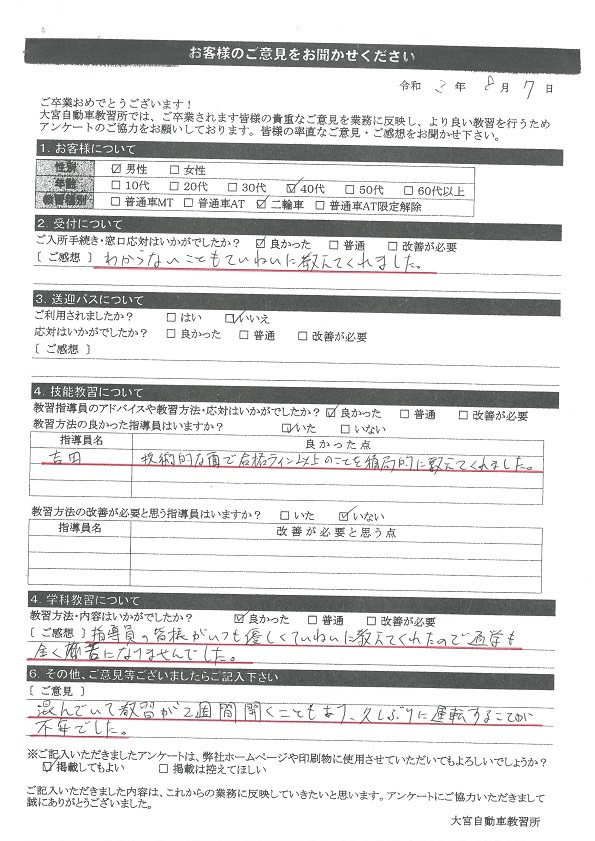 お客様のご意見をお聞かせください
令和 3 年 8 月 7 日
ご卒業おめでとうございます！
大宮自動車教習所では、ご卒業されます皆様の貴重なご意見を業務に反映し、より良い教習を行うため
アンケートのご協力をお願いしております。皆様の率直なご意見・ご感想をお聞かせ下さい。
1. お客様について
性別 ☑ 男性 ☐ 女性
年齢 ☐ 10代 ☐ 20代 ☐ 30代 ☑ 40代 ☐ 50代 ☐ 60代以上
教習種別 ☐ 普通車MT ☐ 普通車AT ☑ 二輪車 ☐ 普通車AT限定解除
2. 受付について
ご入所手続き・窓口応対はいかがでしたか？ ☑ 良かった ☐ 普通 ☐ 改善が必要
〔 ご感想 〕 わからないこともていねいに教えてくれました。
3. 送迎バスについて
ご利用されましたか？ ☐ はい ☑ いいえ
応対はいかがでしたか？ ☐ 良かった ☐ 普通 ☐ 改善が必要
〔 ご感想 〕
4. 技能教習について
教習指導員のアドバイスや教習方法・応対はいかがでしたか？ ☑ 良かった ☐ 普通 ☐ 改善が必要
教習方法の良かった指導員はいますか？ ☑ いた ☐ いない
指導員名 良かった点
吉田 技術的な面で合格ライン以上のことを積局的に教えてくれました。
教習方法の改善が必要と思う指導員はいますか？ ☐ いた ☑ いない
指導員名 改善が必要と思う点
4. 学科教習について
教習方法・内容はいかがでしたか？ ☑ 良かった ☐ 普通 ☐ 改善が必要
〔 ご感想 〕 指導員の皆様がいつも優しくていねいに教えてくれたので通学も
全く苦になりませんでした。
6. その他、ご意見等ございましたらご記入下さい
〔 ご意見 〕
混んでいて教習が2週間開くこともあり、久しぶりに運転することが
不安でした。
※ご記入いただきましたアンケートは、弊社ホームページや印刷物に使用させていただいてもよろしいでしょうか？
☑ 掲載してもよい ☐ 掲載は控えてほしい
ご記入いただきました内容は、これからの業務に反映していきたいと思います。アンケートにご協力いただきまして
誠にありがとうございました。
大宮自動車教習所